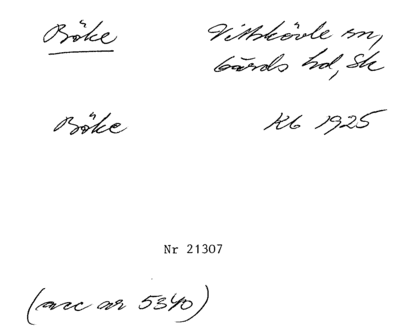 Böke Vittskövle sn,
Gärds hd, Sk
Böke Kb 1925
Nr 21307
(acc nr 5340)